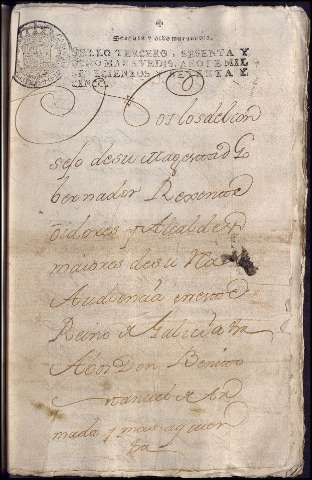 Sesenta y ocho maravedis.
SELLO TERCERO, SESENTA Y
OCHO MARAVEDIS, AÑO DE MIL
SETECIENTOS Y SETENTA Y
CINCO
os los del con
sejo de su Magestad Go
bernador Rexente
oidores y Alcaldes
maiores de su Rl
Audiencia en este
Reino de Galicia &a
A bos Don Benito
Manuel de Ar
mada y
&a